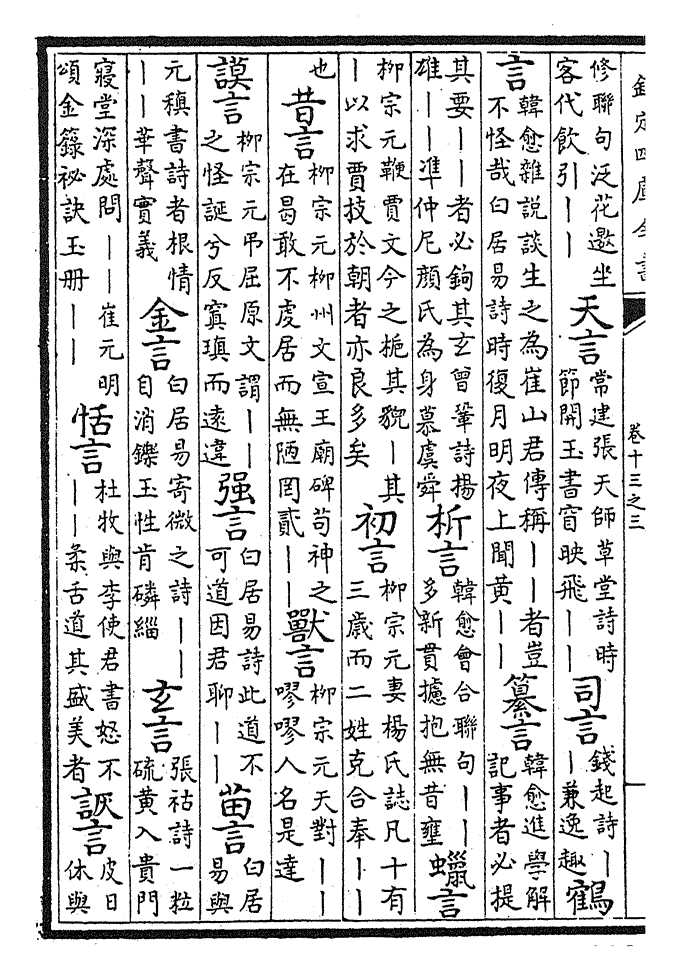 欽定四庫全書
卷十三之三
修聯句泛花邀坐
客代飲引丨丨
天言
常建張天師草堂詩時
節開玉書窅映飛丨丨
司言
錢起詩丨
丨兼逸趣
鶴
言
韓愈雜說談生之為崔山君傳稱丨丨者豈
不怪哉白居易詩時復月明夜上聞黃丨丨
纂言
韓愈進學解
記事者必提
其要丨丨者必鉤其玄曾鞏詩揚
雄丨丨準仲尼顏氏為身慕虞舜
析言
韓愈會合聯句丨丨
多新貫攄抱無昔壅
蠟言
柳宗元鞭賈文今之梔其貌丨其
丨以求賈技於朝者亦良多矣
初言
柳宗元妻楊氏誌凡十有
三歲而二姓克合奉丨丨
也
昔言
柳宗元柳州文宣王廟碑苟神之
在曷敢不虔居而無陋罔貳丨丨
獸言
柳宗元天對丨丨
嘐嘐人名是達
謨言
柳宗元弔屈原文謂丨丨
之怪誕兮反寘瑱而遠違
强言
白居易詩此道不
可道因君聊丨丨
苗言
白居
易與
元稹書詩者根情
丨丨華聲實義
金言
白居易寄微之詩丨丨
自消鑠玉性肯磷緇
玄言
張祜詩一粒
硫黃入貴門
寢堂深處問丨丨崔元明
頌金籙祕訣玉冊丨丨
恬言
杜牧與李使君書怒不
丨丨柔舌道其盛美者
詼言
皮日
休與